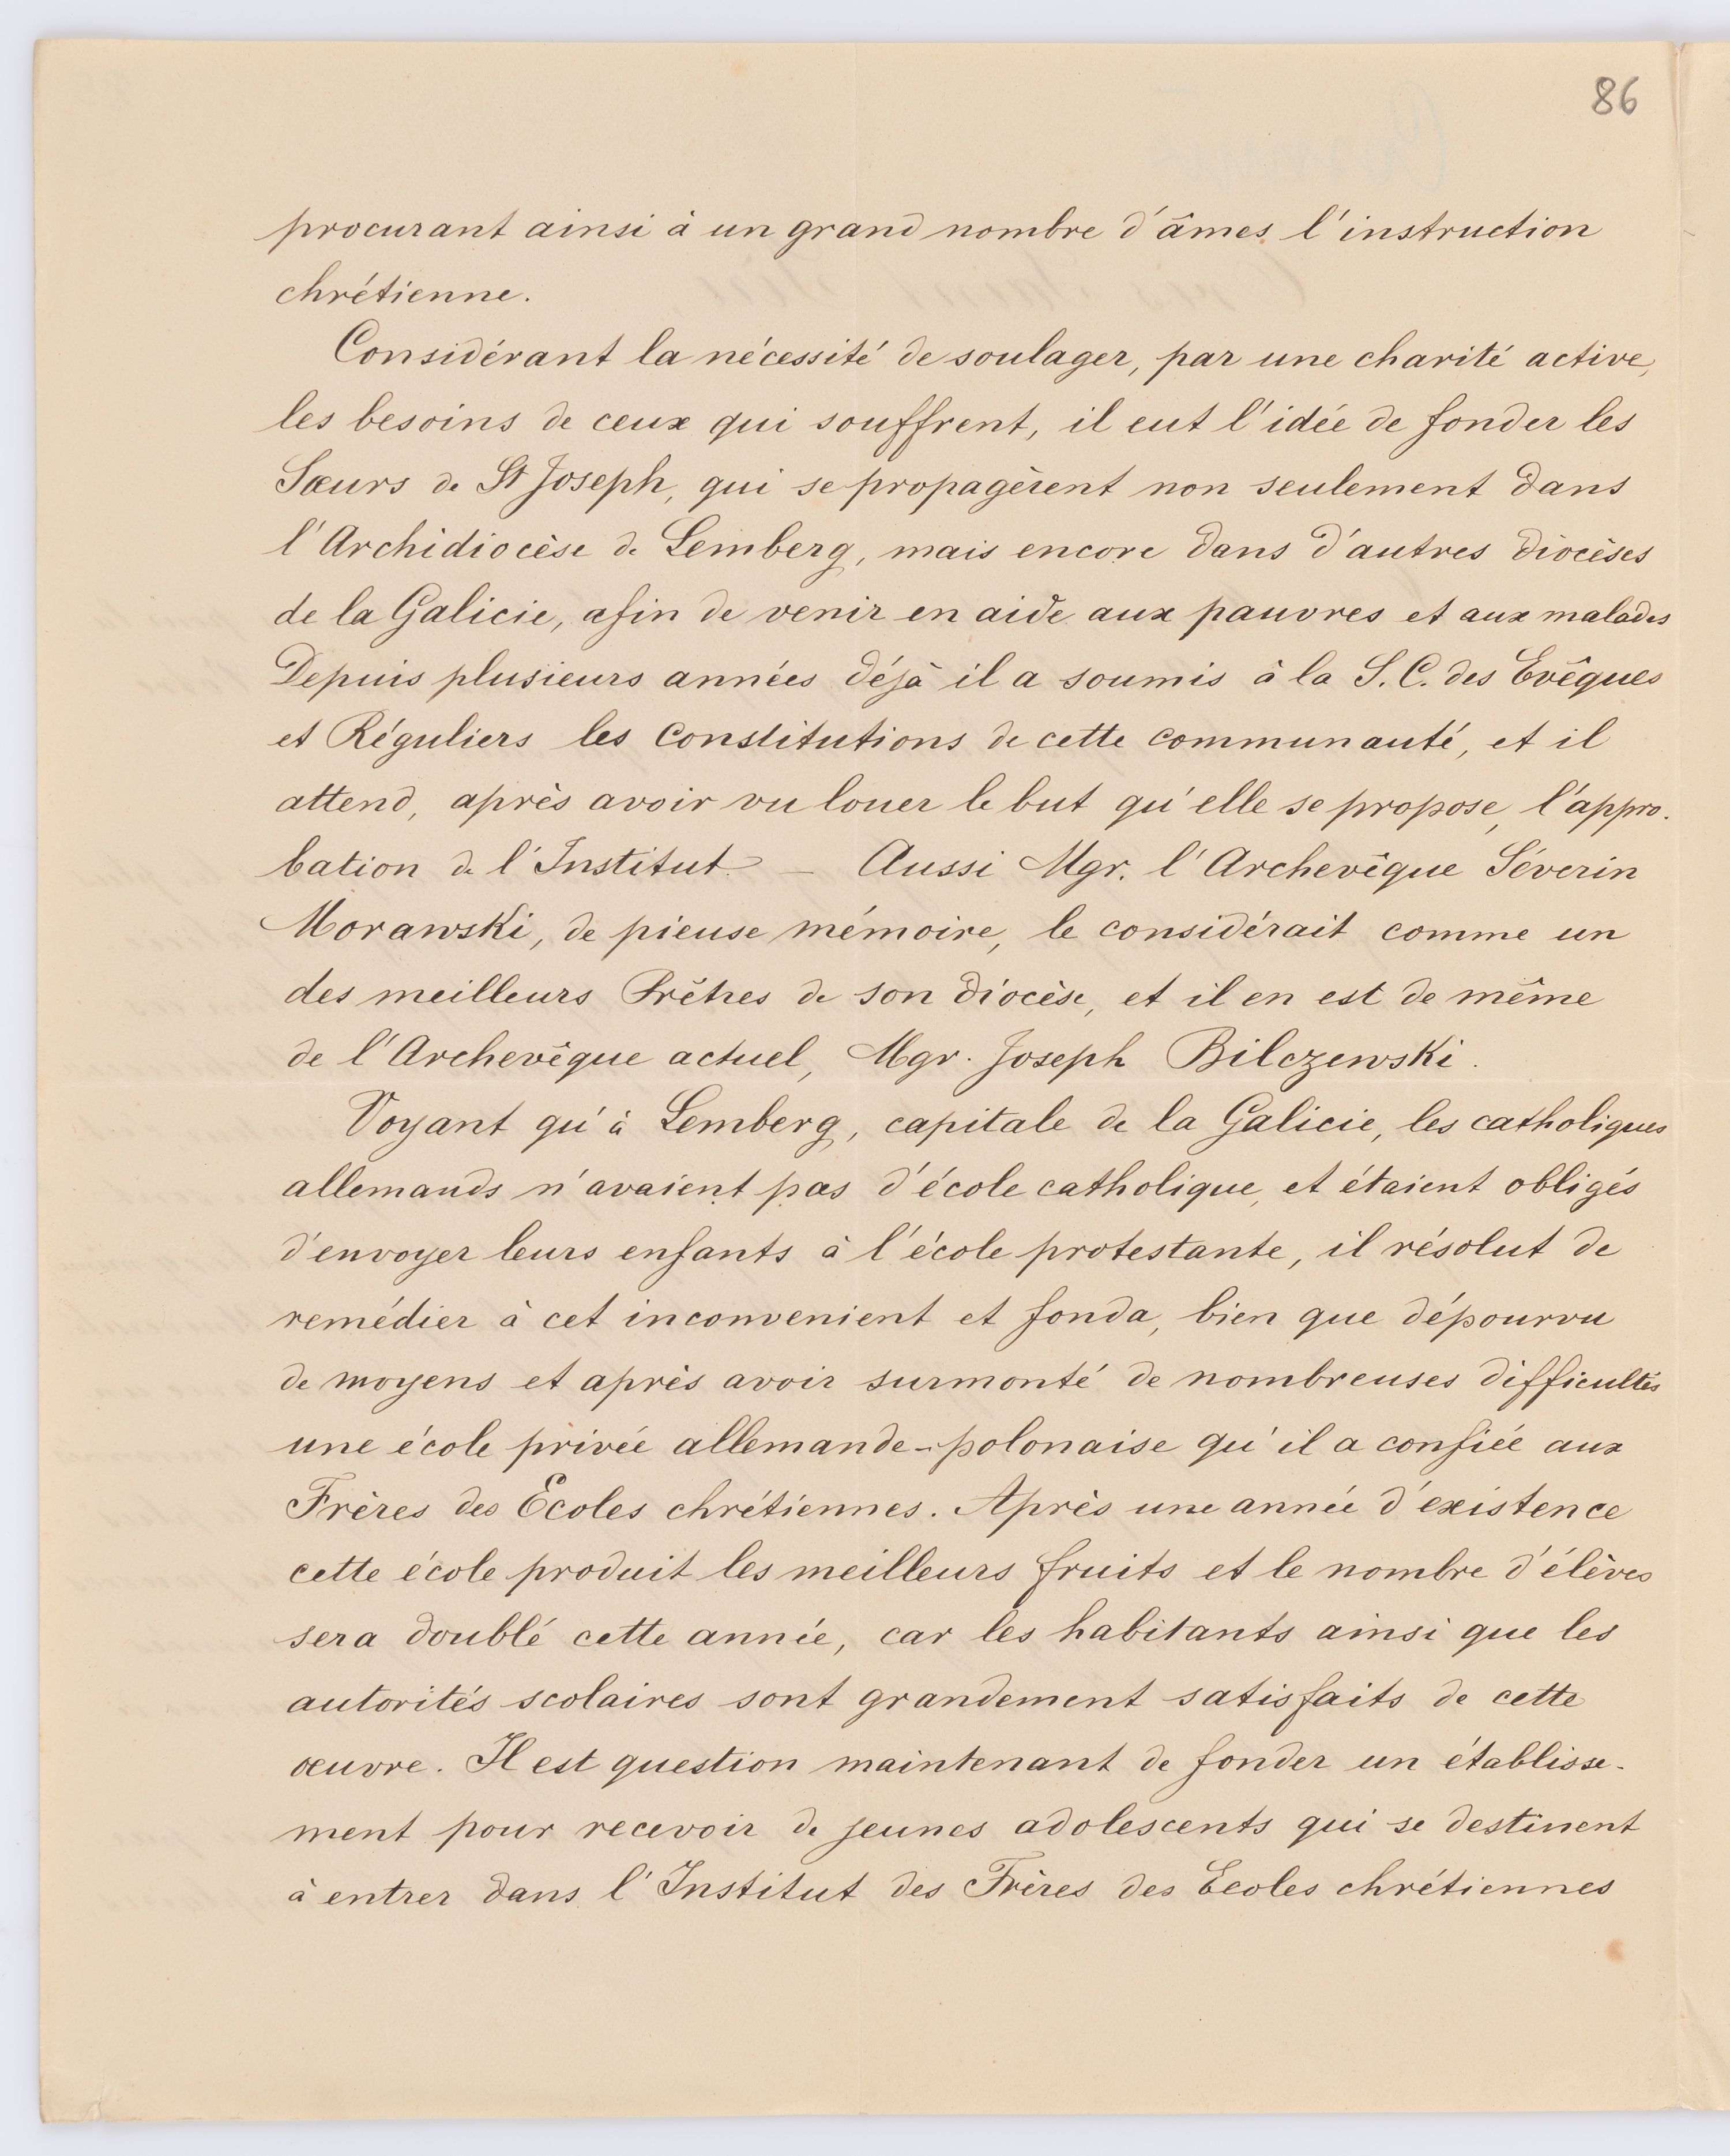 86
procurant ainsi à un grand nombre d'âmes l'instruction
chrétienne.
Considérant la nécessité de soulager, par une charité active,
les besoins de ceux qui souffrent, il eut l'idée de fonder les
Sœurs de St Joseph, qui se propagèrent non seulement dans
l'Archidiocèse de Lemberg, mais encore dans d'autres diocèses
de la Galicie, afin de venir en aide aux pauvres et aux malades
Depuis plusieurs années déjà il a soumis à la S. C. des Evêques
et Réguliers les Constitutions de cette communauté, et il
attend, après avoir vu louer le but qu'elle se propose, l'appro-
bation de l'Institut. — Aussi Mgr. l'Archevêque Séverin
Morawski, de pieuse mémoire, le considérait comme un
des meilleurs Prêtres de son diocèse, et il en est de même
de l'Archevêque actuel, Mgr. Joseph Bilczewski.
Voyant qu'à Lemberg, capitale de la Galicie, les catholiques
allemands n'avaient pas d'école catholique, et étaient obligés
d'envoyer leurs enfants à l'école protestante, il résolut de
remédier à cet inconvenient et fonda, bien que dépourvu
de moyens et après avoir surmonté de nombreuses difficultés
une école privée allemande-polonaise qu'il a confiée aux
Frères des Ecoles chrétiennes. Après une année d'existence
cette école produit les meilleurs fruits et le nombre d'élèves
sera doublé cette année, car les habitants ainsi que les
autorités scolaires sont grandement satisfaits de cette
œuvre. Il est question maintenant de fonder un établisse-
ment pour recevoir de jeunes adolescents qui se destinent
à entrer dans l'Institut des Frères des Ecoles chrétiennes